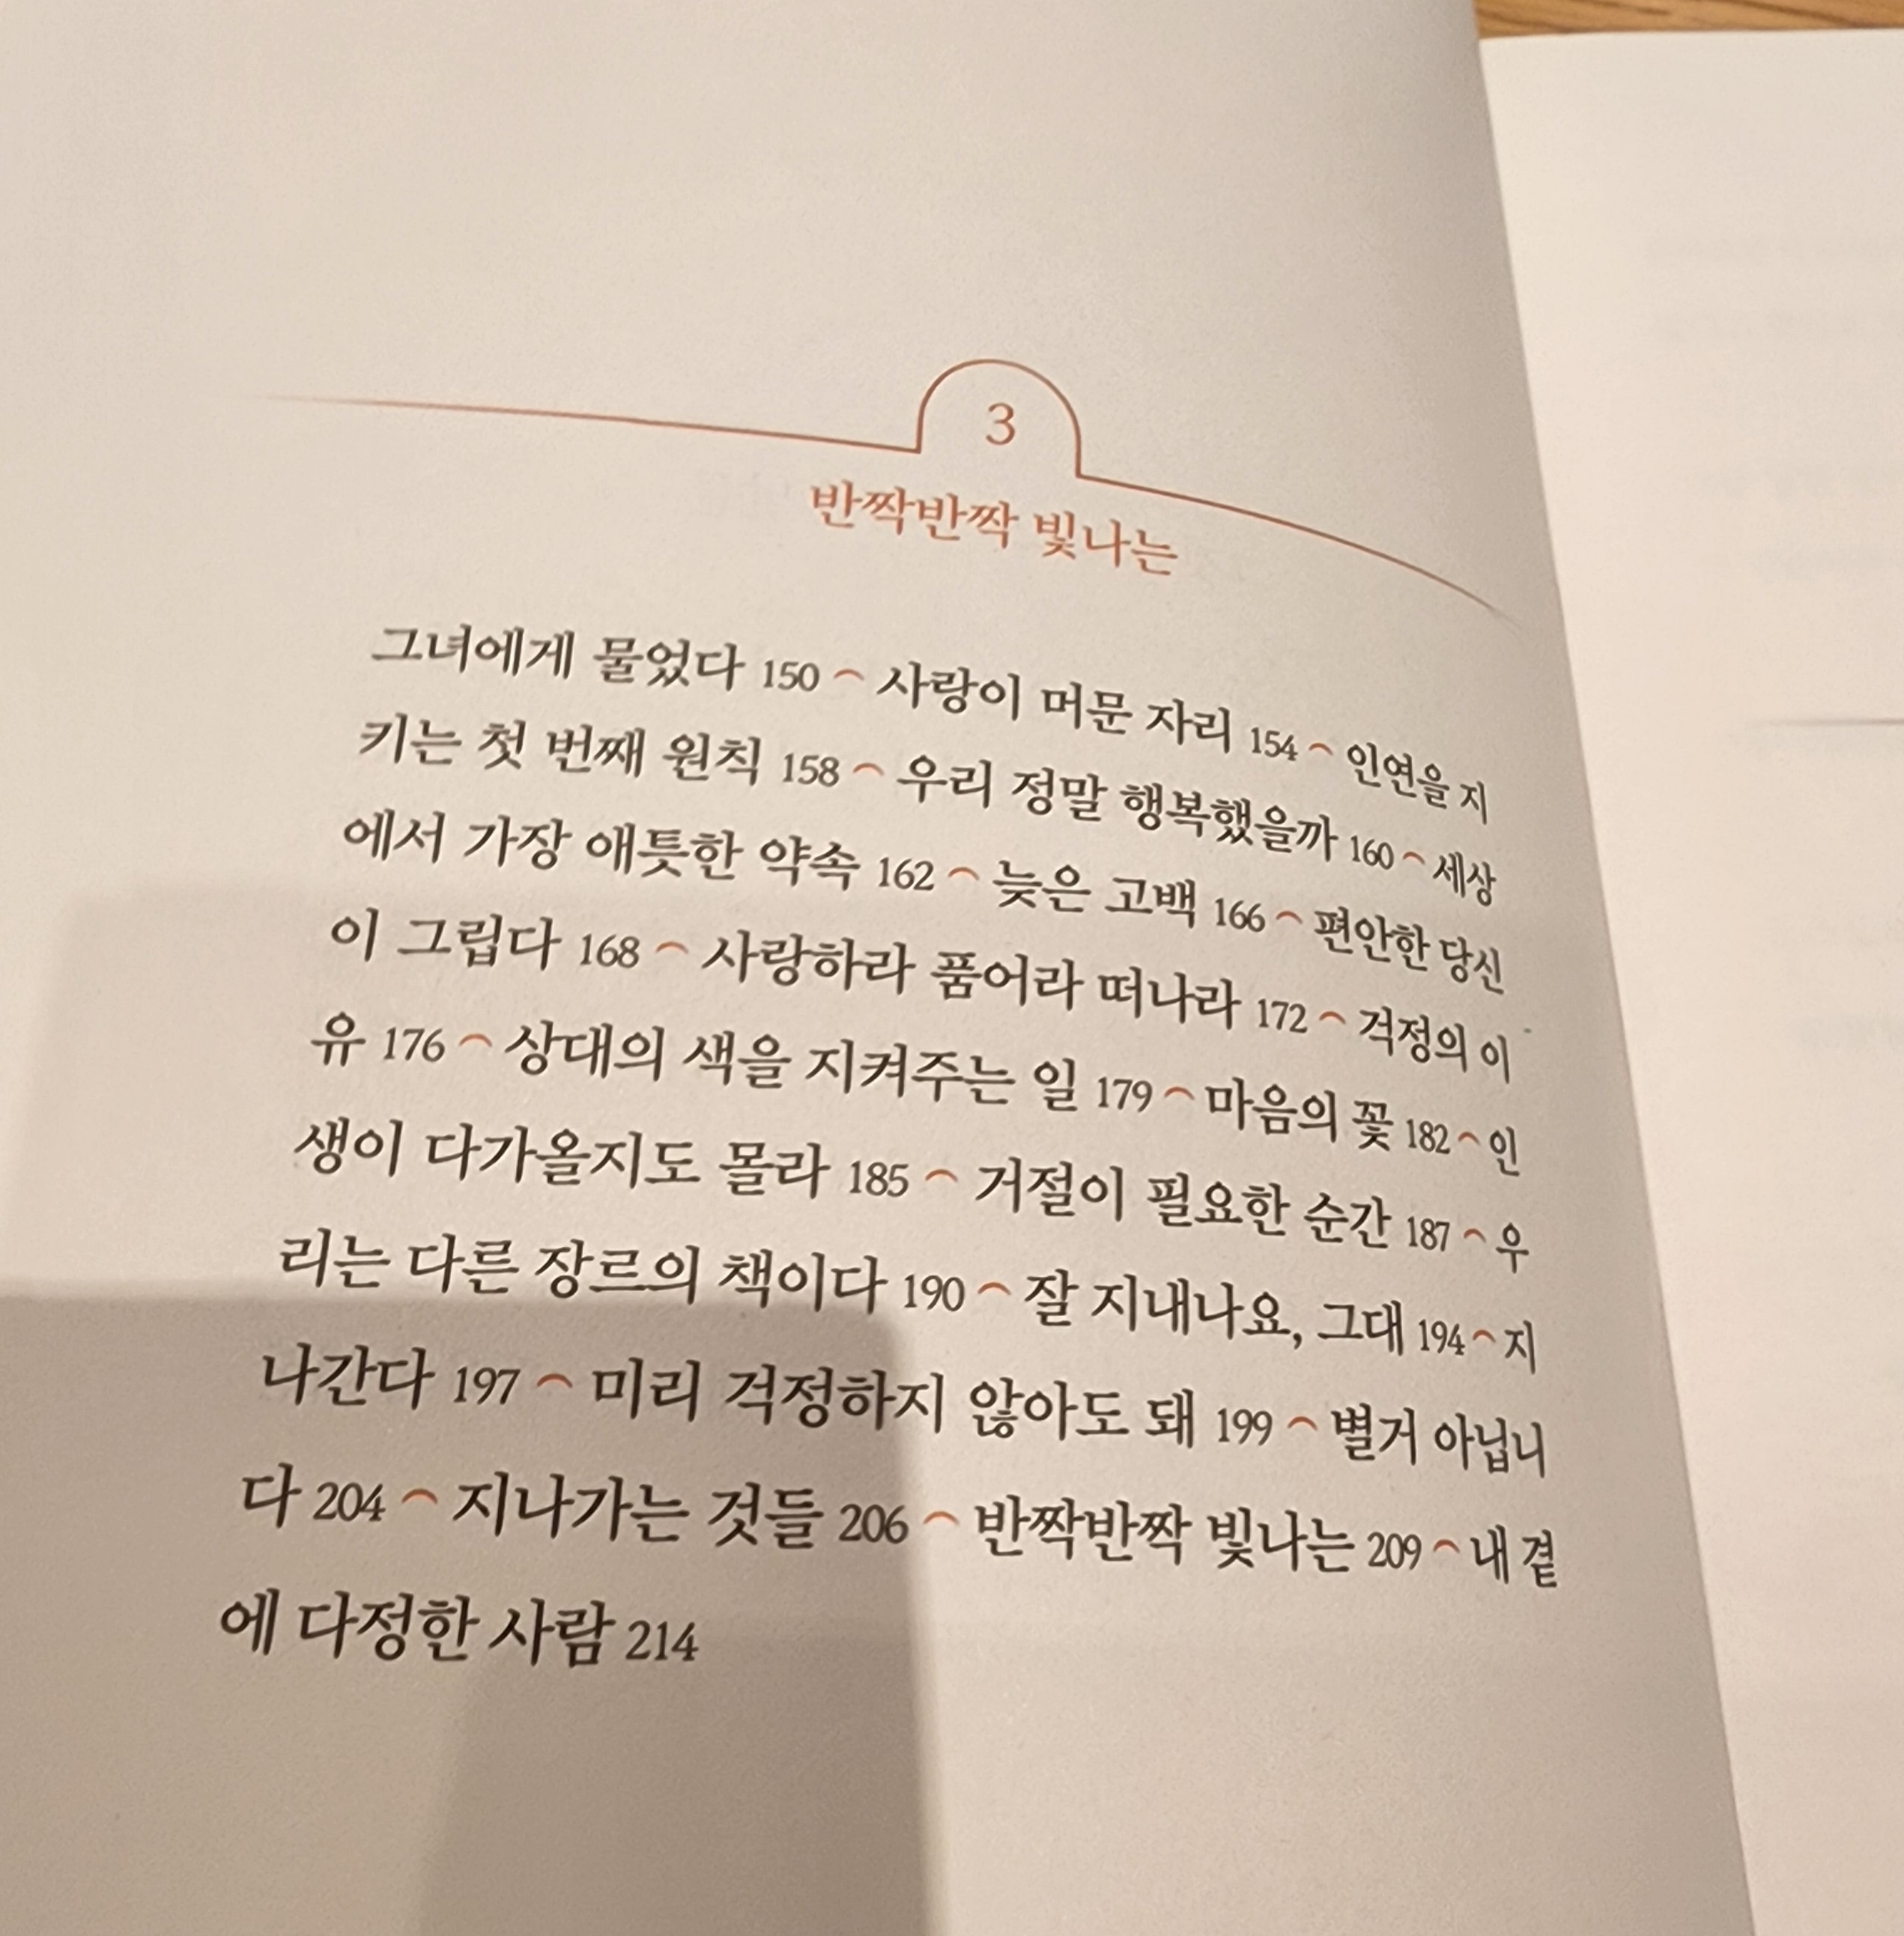 3
반짝반짝 빛나는
그녀에게 물었다 150 ⌒ 사랑이 머문 자리 154 ⌒ 인연을 지
키는 첫 번째 원칙 158 ⌒ 우리 정말 행복했을까 160 ⌒ 세상
에서 가장 애틋한 약속 162 ⌒ 늦은 고백 166 ⌒ 편안한 당신
이 그립다 168 ⌒ 사랑하라 품어라 떠나라 172 ⌒ 걱정의 이
유 176 ⌒ 상대의 색을 지켜주는 일 179 ⌒ 마음의 꽃 182 ⌒ 인
생이 다가올지도 몰라 185 ⌒ 거절이 필요한 순간 187 ⌒ 우
리는 다른 장르의 책이다 190 ⌒ 잘 지내나요, 그대 194 ⌒ 지
나간다 197 ⌒ 미리 걱정하지 않아도 돼 199 ⌒ 별거 아닙니
다 204 ⌒ 지나가는 것들 206 ⌒ 반짝반짝 빛나는 209 ⌒ 내 곁
에 다정한 사람 214